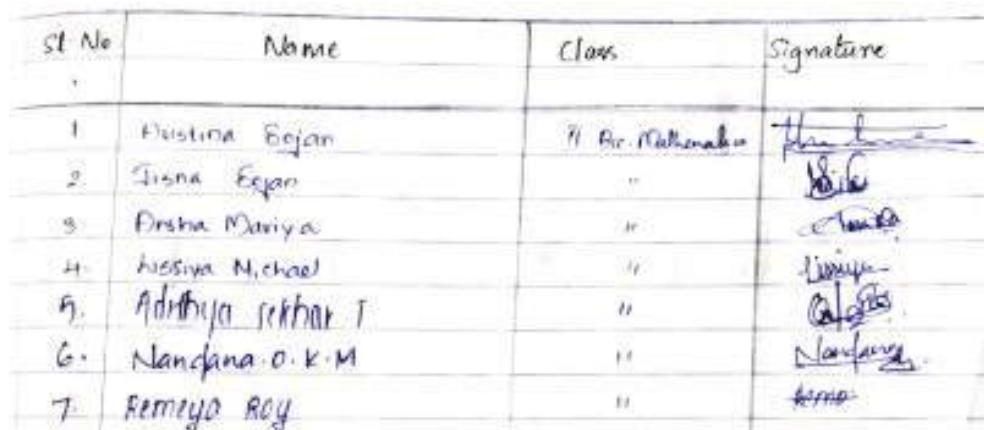 Sl No Name Class Signature
1 Austina Sojan II Bsc. Mathematics
2 Jisna Sojan "
3 Arsha Mariya "
4. Lissiya Michael " Lissiya
5. Adithya sekhar T "
6. Nandana.O.K.M " Nandana
7. Remeya Roy "